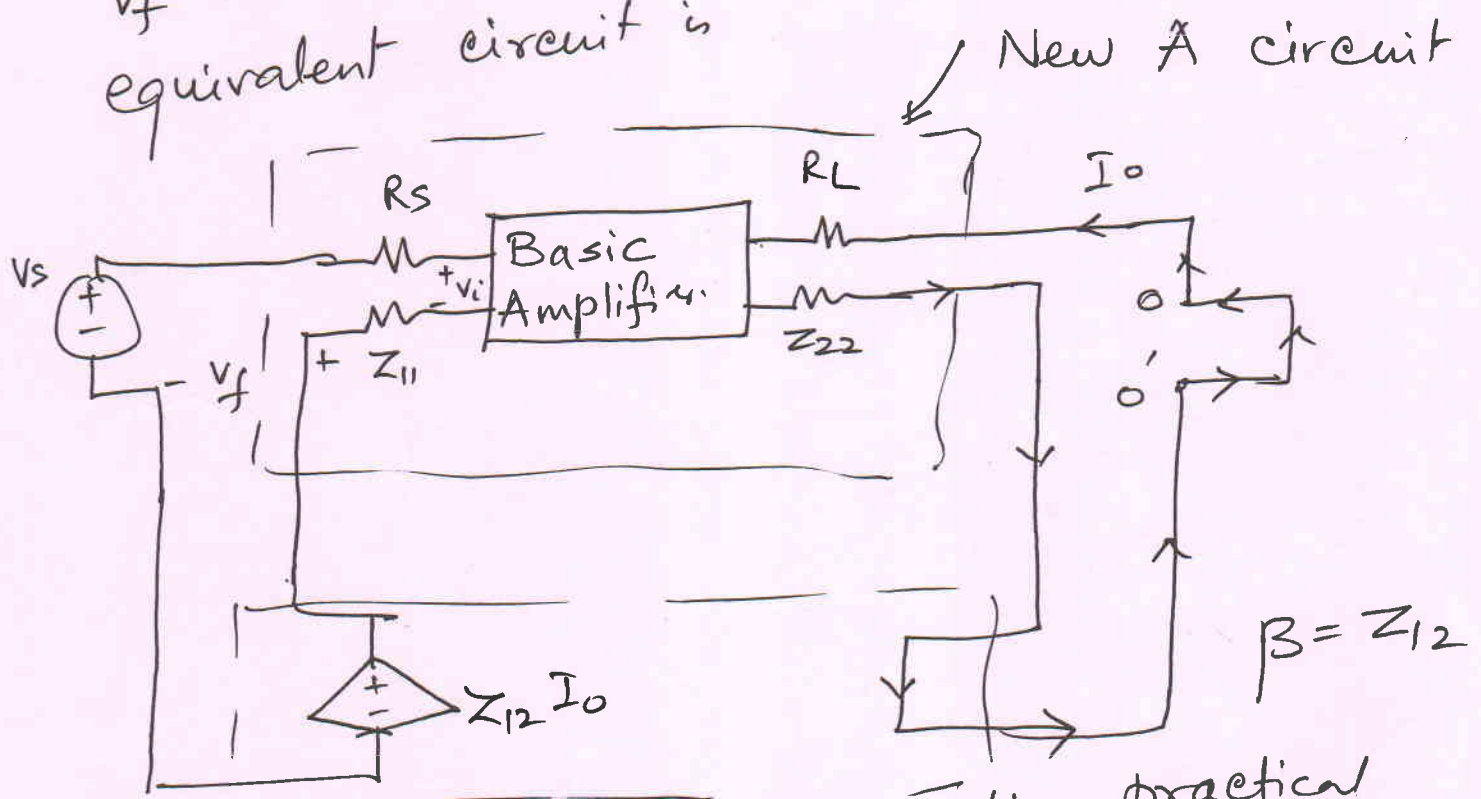 Vf
equivalent circuit is
New A circuit
RS
RL
Io
Vs
+
-
+ Vi -
Basic
Amplifier.
+ Z11
Z22
- Vf
O
O'
β = Z12
+
-
Z12 Io
practical